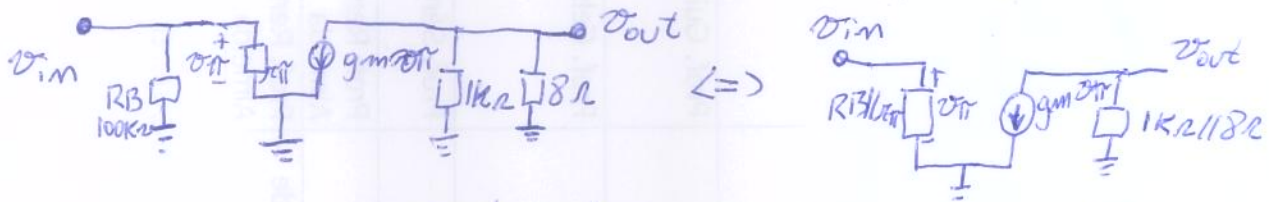 vin
RB
100KΩ
+
vπ
-
rπ
gmvπ
1KΩ
8Ω
vout
<=>
vin
RB//rπ
+
vπ
-
gmvπ
1KΩ//8Ω
vout